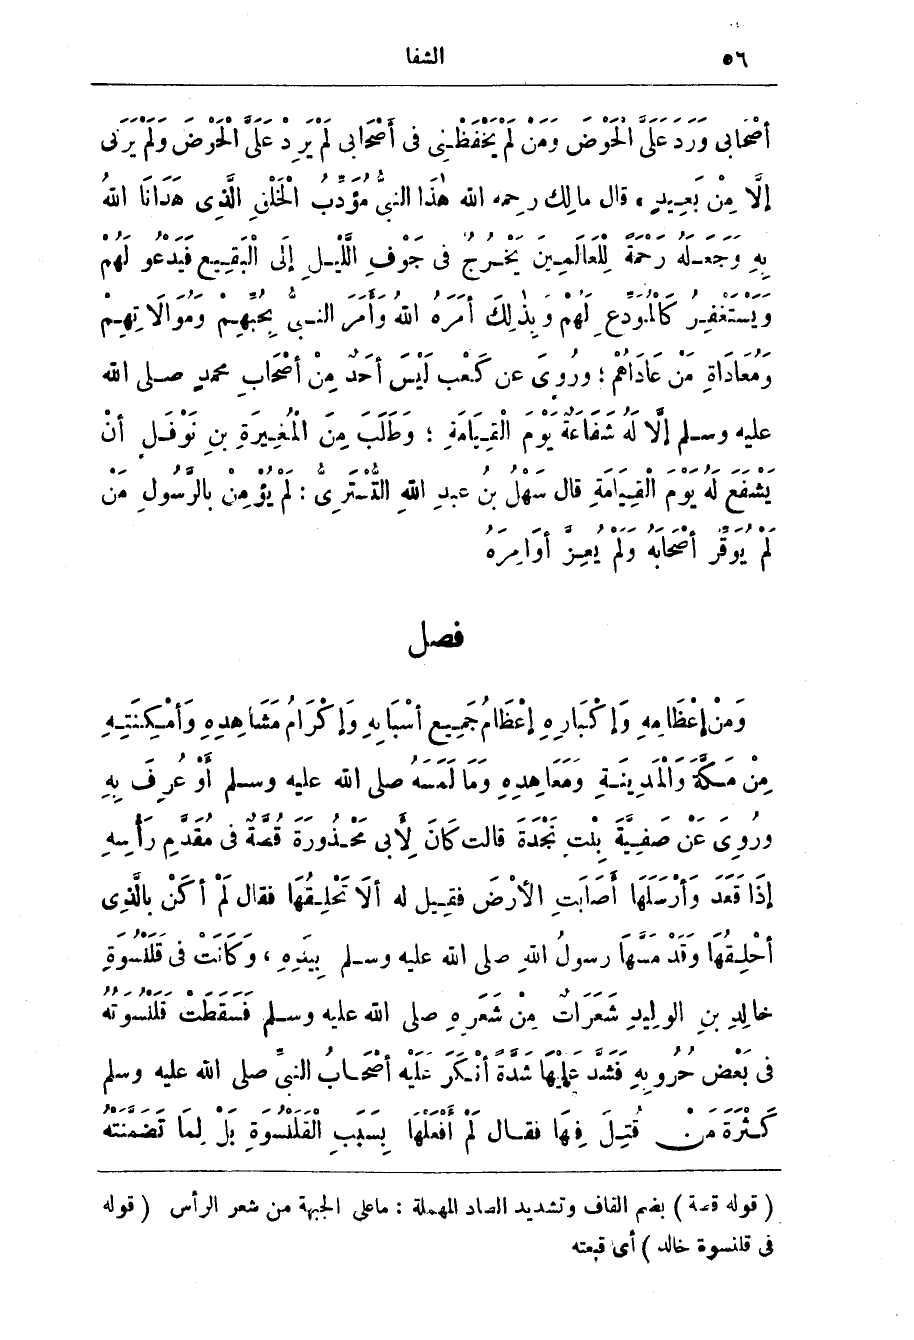 ٥٦ الشفا
أَصْحَابِى وَرَدَ عَلَىَّ الْحَوْضَ وَمَنْ لَمْ يَحْفَظْـنِى فى أَصْحَابِى لَمْ يَرِدْ عَلَىَّ الْحَوْضَ وَلَمْ يَرَنِى
إلَّا مِنْ بَعِـيدٍ ، قال مالِك رحمه الله هٰذَا النبىُّ مُؤَدِّبُ الْخَلْقِ الَّذِى هَدَانَا اللهُ
بِهِ وَجَعَـلَهُ رَحْمَةً لِلْعَالَمِـينَ يَخْـرُجُ فى جَوْفِ اللَّيْـلِ إلَى الْبَقِـيعِ فَيَدْعُو لَهُمْ
وَيَسْتَغْفِـرُ كَالْمُوَدِّعِ لَهُمْ وَبِذٰلِكَ أَمَرَهُ اللهُ وَأَمَرَ النـبىُّ بِحُبِّهِـمْ وَمُوَالَاتِهِـمْ
وَمُعَادَاةِ مَنْ عَادَاهُمْ ؛ ورُوِىَ عن كَعْب لَيْسَ أحَدٌ مِنْ أصْحَابِ محمدٍ صـلى الله
عليه وسـلم إلَّا لَهُ شَفَاعَةٌ يَوْمَ الْقِـيَامَةِ ؛ وَطَلَبَ مِنَ الْمُغِـيرَةِ بنِ نَوْفَـلٍ أنْ
يَشْفَعَ لَهُ يَوْمَ الْقِـيَامَةِ قال سَهْلُ بنُ عبدِ اللهِ التُّسْتَرِىُّ : لَمْ يُؤْمِنْ بالرَّسُولِ مَنْ
لَمْ يُوَقِّرْ أصْحَابَهُ وَلَمْ يُعِـزَّ أوَامِرَهُ
فصل
وَمِنْ إعْظَامِهِ وَإِكْبَارِهِ إعْظَامُ جَمِـيعِ أسْبَابِهِ وَإِكْرَامُ مَشَاهِدِهِ وَأَمْكِـنَتِـهِ
مِنْ مَـكَّةَ وَالْمَدِينَـةِ وَمَعَاهِدِهِ وَمَا لَمَسَهُ صلى الله عليه وسـلم أَوْ عُرِفَ بِهِ
ورُوِىَ عَنْ صَفِـيَّةَ بِنْتِ نَجْدَةَ قالت كَانَ لِأَبِى مَحْـذُورَةَ قُصَّةٌ فى مُقَدَّمِ رَأْسِهِ
إذَا قَعَدَ وَأَرْسَلَهَا أَصَابَتِ الأَرْضَ فقيـل له ألَا تَحْلِـقُهَا فقال لَمْ أكُنْ بالَّذِى
أحْلِـقُهَا وَقَدْ مَسَّهَا رسولُ اللهِ صلى الله عليه وسـلم بِيَدِهِ ، وَكَانَتْ فى قَلَنْسُوَةِ
خالِدِ بنِ الوليدِ شَعَرَاتٌ مِنْ شَعَرِهِ صلى الله عليه وسـلم فَسَقَطَتْ قَلَنْسُوَتُهُ
فى بَعْضِ حُرُوبِهِ فَشَدَّ عَلَيْهَا شَدَّةً أنْـكَرَ عَلَيْه أصْحَـابُ النبىِّ صلى الله عليه وسلم
كَـثْرَةَ مَنْ قُتِـلَ فِيهَا فقـال لَمْ أَفْعَلْهَا بِسَبَبِ الْقَلَنْسُوَةِ بَلْ لِمَا تَضَمَّنَتْهُ
( قوله قصة ) بضم القاف وتشديد الصاد المهملة : ماعلى الجبهة من شعر الرأس ( قوله
فى قلنسوة خالد ) أى قبعته